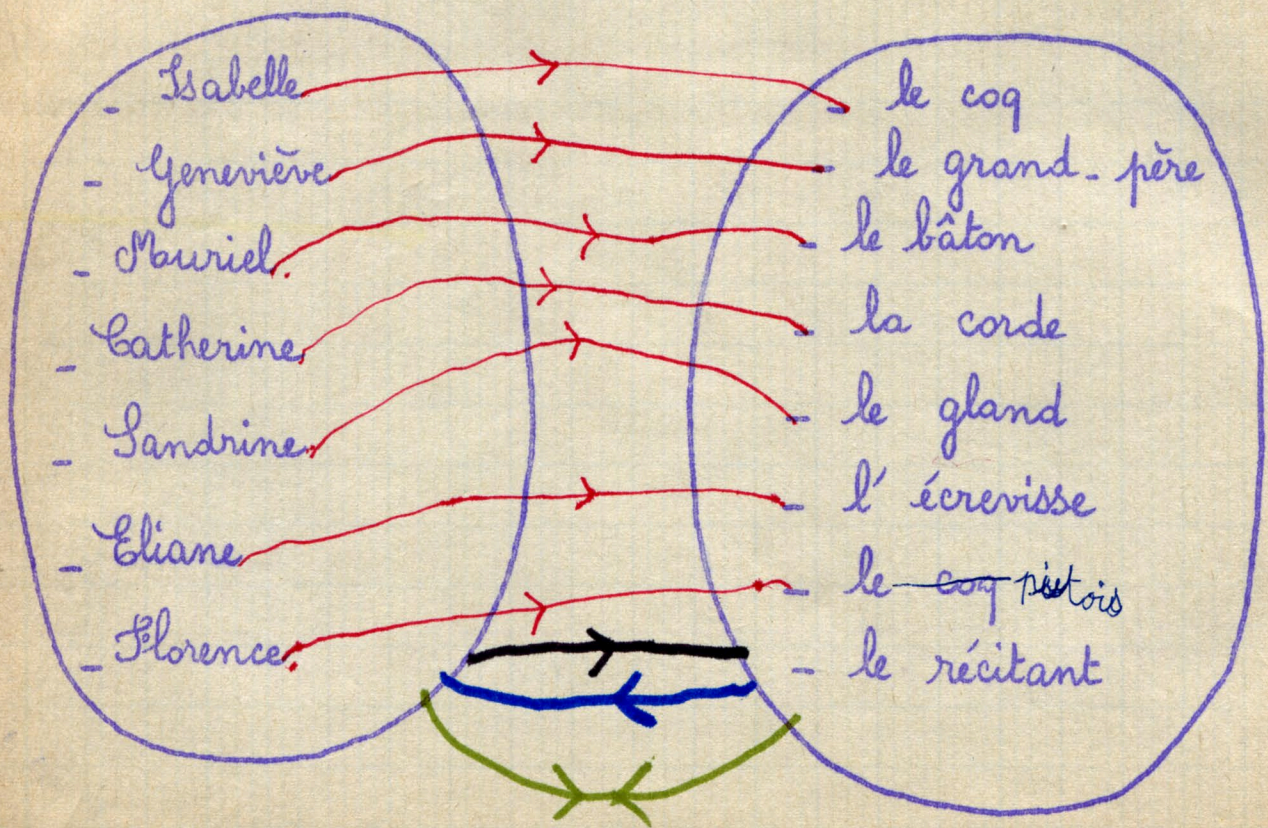 - Isabelle
- Geneviève
- Muriel.
- Catherine
- Sandrine
- Eliane
- Florence.
- le coq
- le grand-père
- le bâton
- la corde
- le gland
- l'écrevisse
- le coq
- le récitant